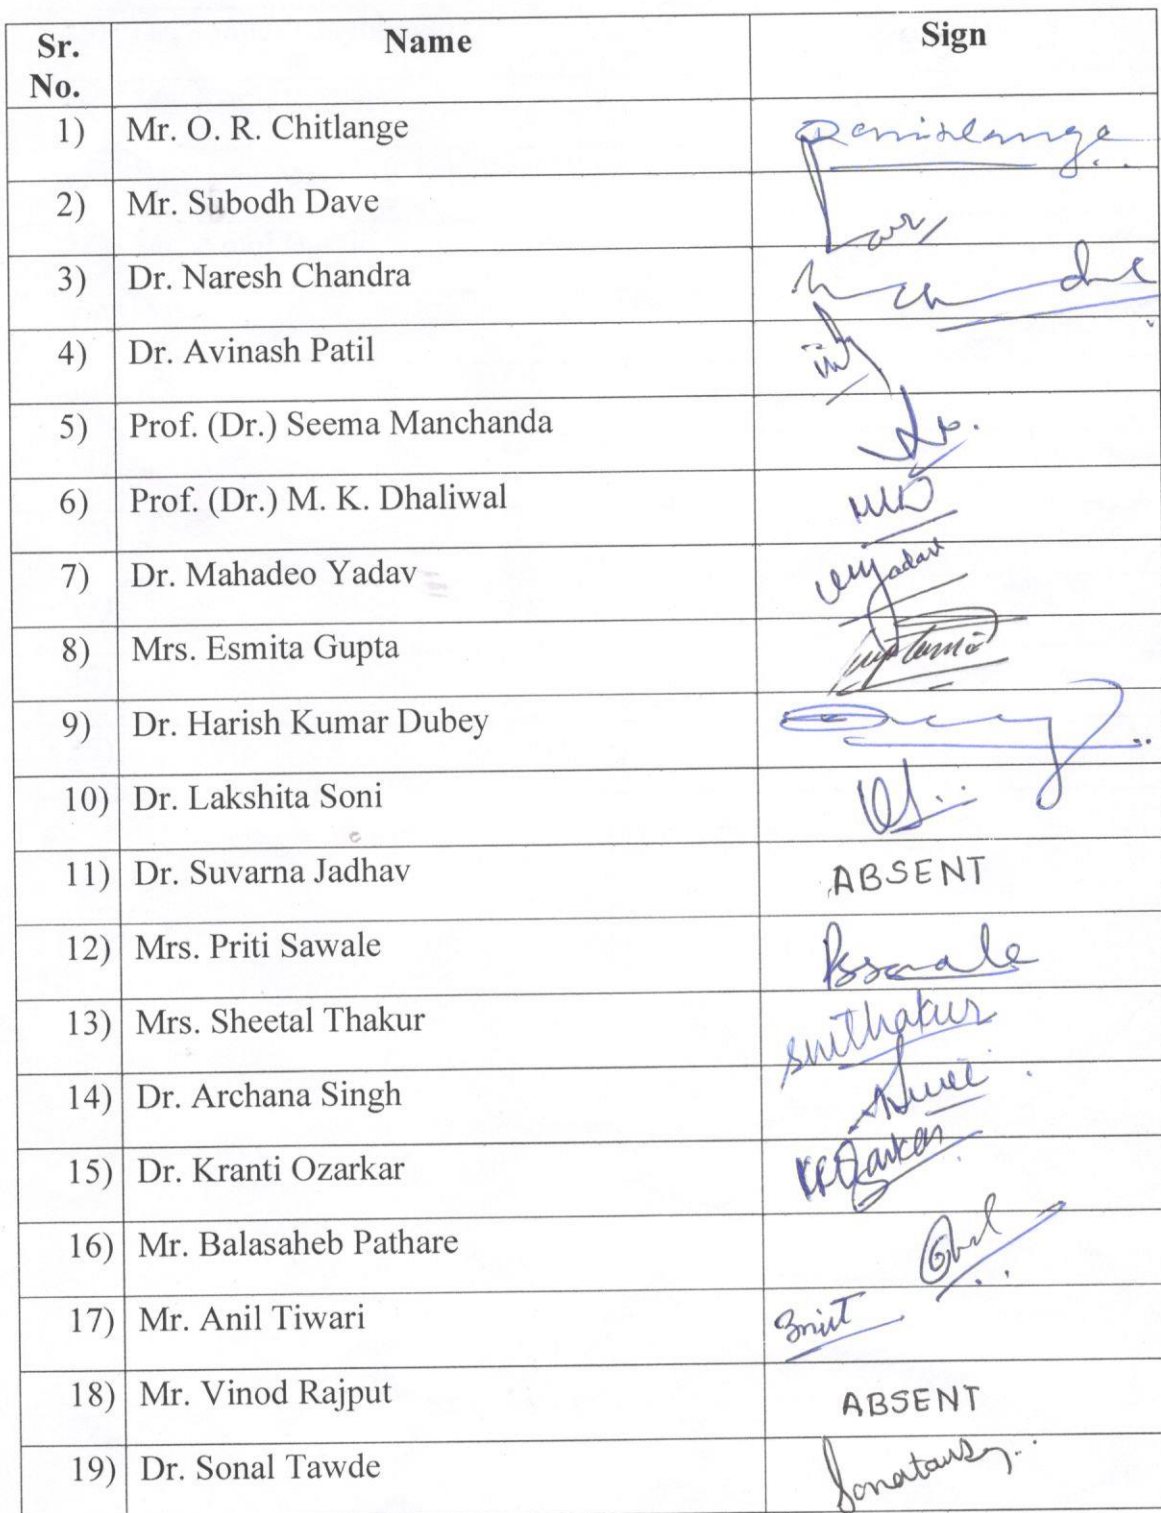 Sr. No. Name Sign
1) Mr. O. R. Chitlange
2) Mr. Subodh Dave
3) Dr. Naresh Chandra
4) Dr. Avinash Patil
5) Prof. (Dr.) Seema Manchanda
6) Prof. (Dr.) M. K. Dhaliwal
7) Dr. Mahadeo Yadav
8) Mrs. Esmita Gupta
9) Dr. Harish Kumar Dubey
10) Dr. Lakshita Soni
11) Dr. Suvarna Jadhav ABSENT
12) Mrs. Priti Sawale
13) Mrs. Sheetal Thakur
14) Dr. Archana Singh
15) Dr. Kranti Ozarkar
16) Mr. Balasaheb Pathare
17) Mr. Anil Tiwari
18) Mr. Vinod Rajput ABSENT
19) Dr. Sonal Tawde